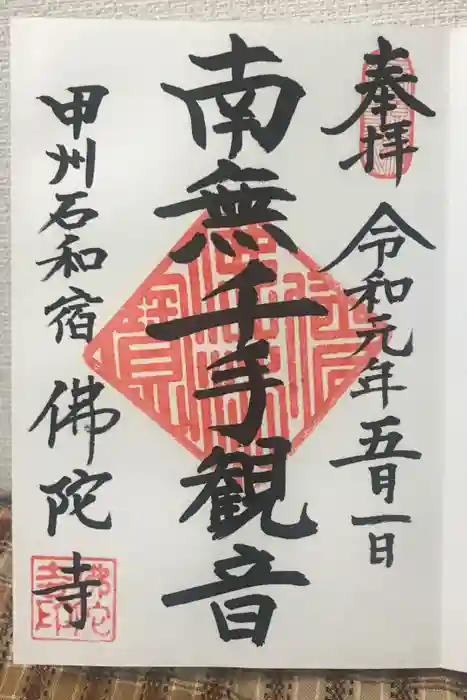 奉拝
令和元年五月一日
南無千手観音
甲州石和宿
佛陀寺